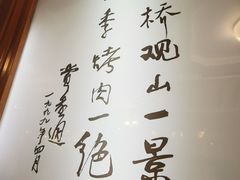 桥观山一景
季烤肉一绝
费孝通
一九九九年四月